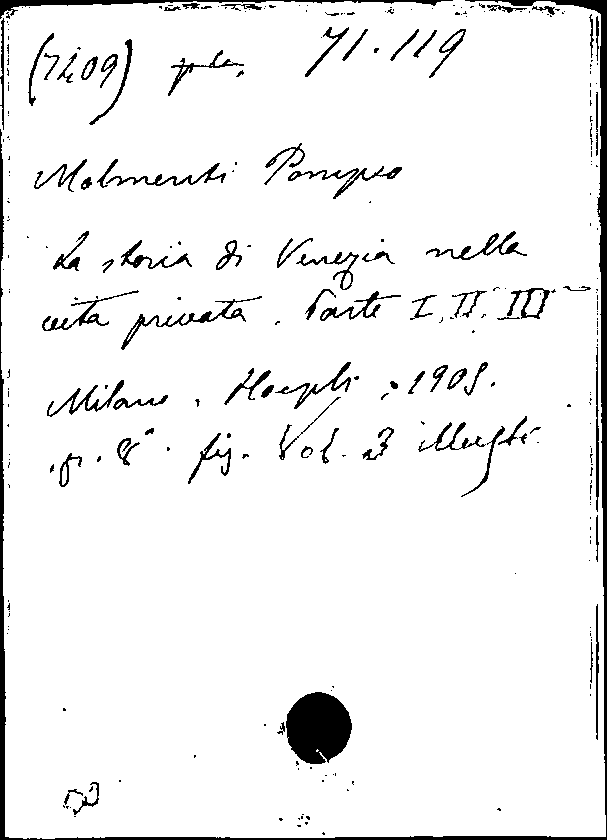 (7209) 71.119
Molmenti Pompeo
La storia di Venezia nella
vita privata. Parte I, II, III
Milano, Hoepli, 1905.
p. 8° fig. Vol. 3 illustr.